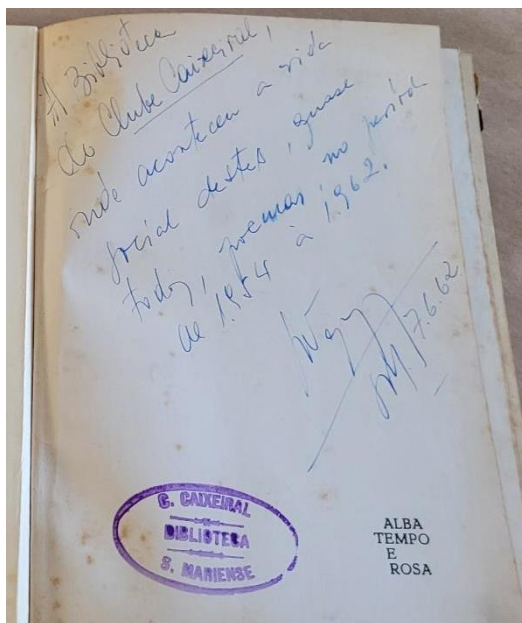 À Biblioteca
do Clube Caixeiral,
onde aconteceu a vida
social destes, quase
todos, poemas, no período
de 1954 à 1962.
7.6.62
C. CAIXEIRAL
BIBLIOTECA
S. MARIENSE
ALBA
TEMPO
E
ROSA